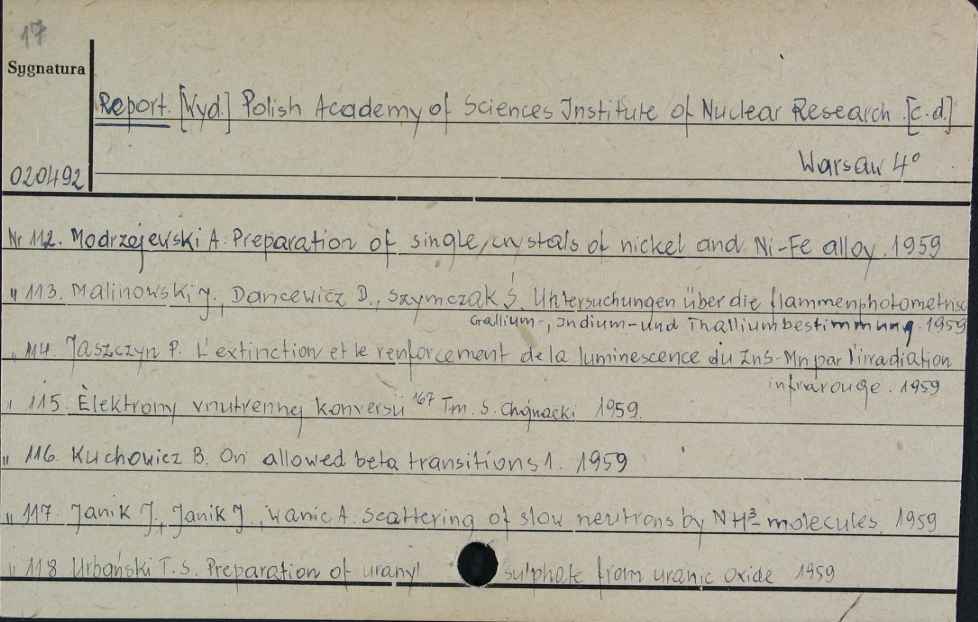 17
Sygnatura
Report. [Wyd.] Polish Academy of Sciences Institute of Nuclear Research. [c.d.]
Warsaw 4°
020492
Nr 112. Modrzejewski A. Preparation of single, crystals of nickel and Ni-Fe alloy. 1959
" 113. Malinowski J., Dancewicz D., Szymczak Ś. Untersuchungen über die flammenphotometrisc
Gallium-, Indium- und Thalliumbestimmung. 1959
" 114 Jaszczyn P. L'extinction et le renforcement de la luminescence du ZnS-Mn par l'irradiation
infrarouge. 1959
" 115. Èlektrony vnutrennej konversii 167 Tm. S. Chojnacki 1959.
" 116. Kuchowicz B. On allowed beta transitions 1. 1959
" 117. Janik J., Janik J., Wanic A. Scattering of slow neutrons by NH3- molecules. 1959
" 118 Urbański T.S. Preparation of uranyl sulphate from uranic oxide 1959